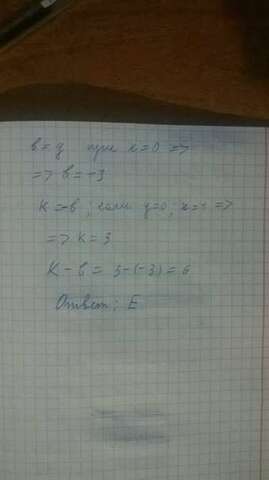 в=y при x=0 =>
=> в=-3
K=-в; если y=0; x=1 =>
=> K=3
K-в= 3-(-3)=6
Ответ: E